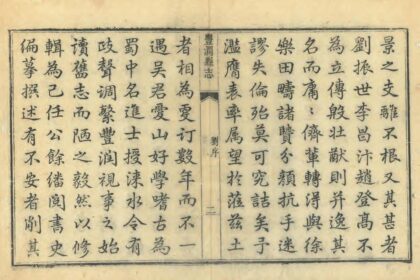 景之支離不根又其甚者
劉振世李昌汴趙登高不
為立傳殷壯猷則幷逸其
名而庸〻儕輩轉得與徐
樂田疇諸賢分抗手迷
謬失倫殆莫可究詰矣予
濫膺表率属望於蒞茲土
豐潤縣志
劉序
二
者相為更訂數年而不一
遇吳君愛山好學古為
蜀中名進士授淶水令有
政聲調繁豐潤視事之始
讀舊志而陋之毅然以修
輯為己任公餘繙閱書史
編摹撰述有不安者削其